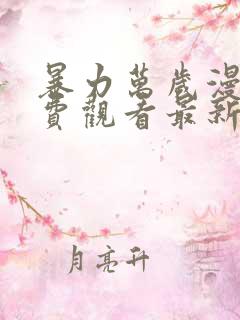 暴力萬歲漫
費觀看最新
月亮升